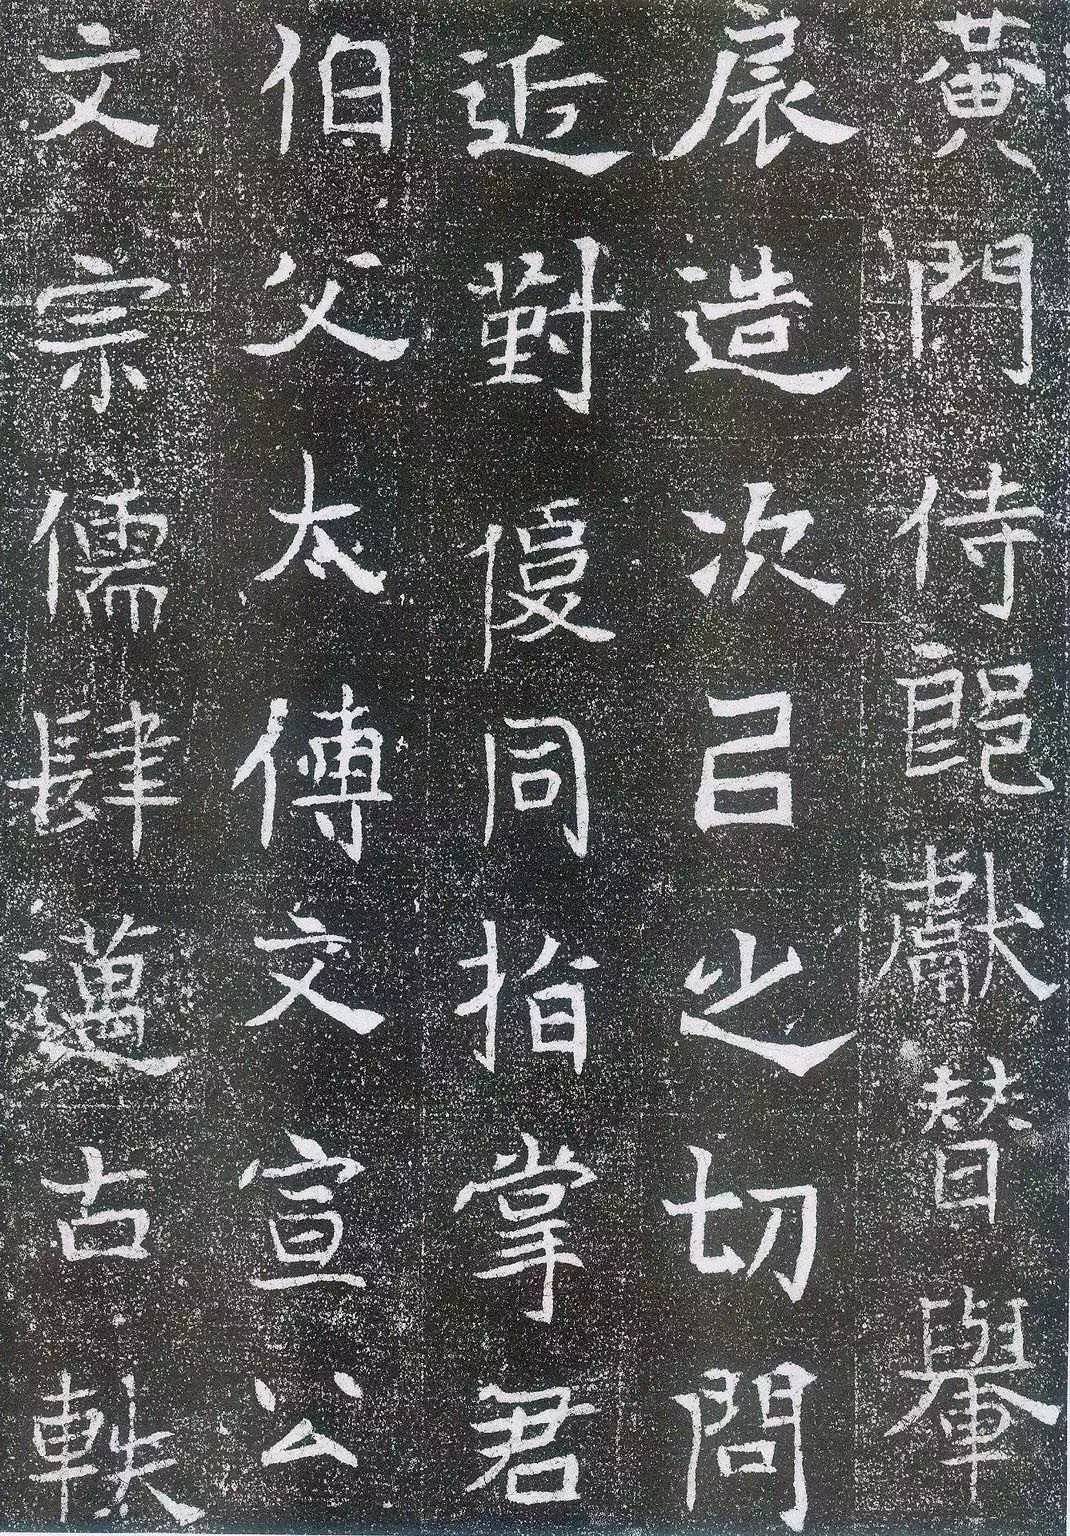 黃門侍郎獻替轝
扆造次㠯之切問
近對優同指掌君
伯父太傅文宣公
文宗儒肆邁古軼